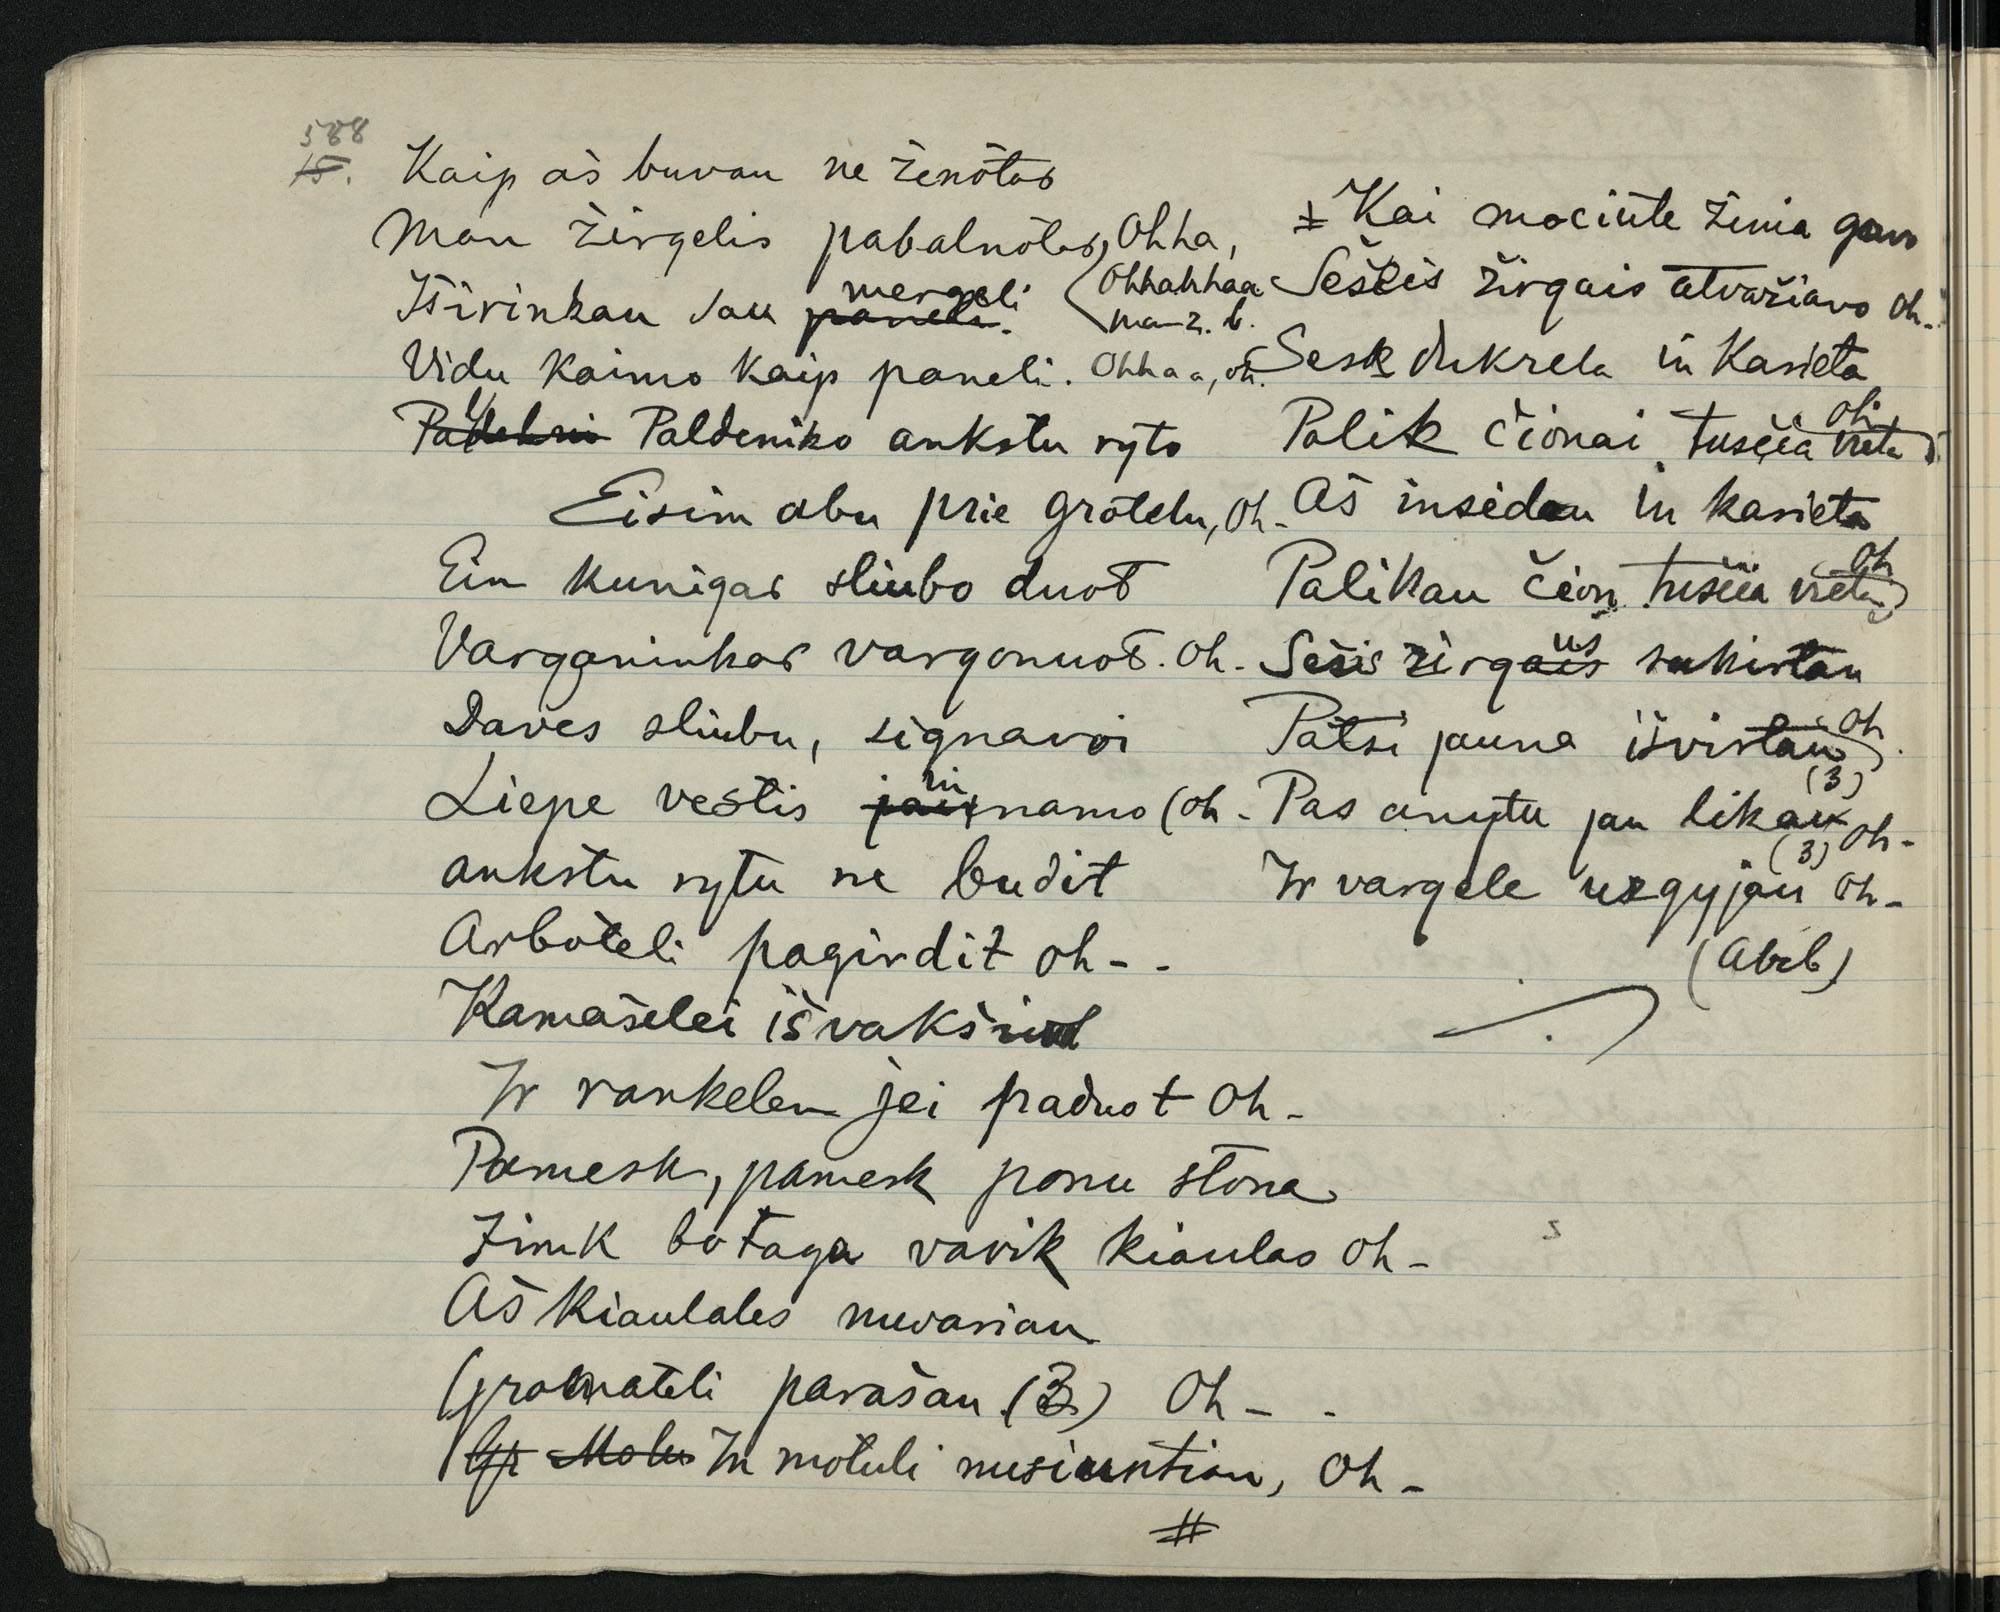 588
15. Kaip aš buvau ne ženotas
Man žirgelis pabalnotas, Ohha,
Išsirinkau sau paneli. mergeli Ohhahhaa
ma ž. b.
Vidu kaimo kaip paneli. Ohhaa, oh.
Paldeniko ankstu ryto
Eisim abu prie grotelu, Oh-
Ein kunigas sliubo duot
Varganinkas vargonuot. Oh-
Daves sliubu, signavoi
Liepe vestis jau in namo (Oh-
ankstu rytu ne budit
Arboteli pagirdit Oh--
Kamašelei išvaksiuot
Ir rankelen jei paduot Oh-
Pamesk, pamesk ponu stona
Zimk botaga varik kiaulas Oh-
Aš kiaulales nuvariau
Gromateli parašau (3) Oh--
Gr Motu In motuli nusiuntiau, Oh-
#
‡ Kai mociute žinia gavo
Sešeis žirgais atvažiavo Oh-
Sesk dukrela in karieta
Palik čionai tusčia vieta oh
Aš insedau in karieta
Palikau čion tusčia vieta Oh
Sešis žirgais us sukirtau
Patsi jauna išvirtau Oh
(3)
Pas anytu jau likau Oh-
(3)
Ir vargele užgyjau Oh-
(Abrb)
s